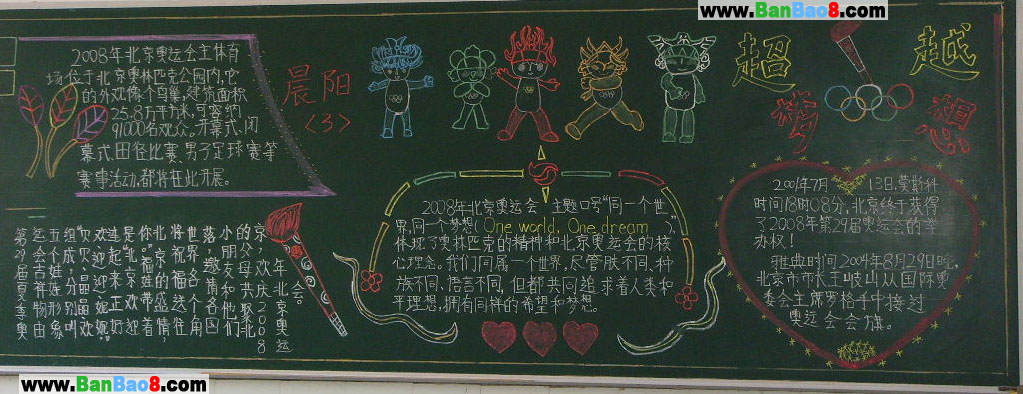 www.BanBao8.com
2008年北京奥运会主体育
场位于北京奥林匹克公园内,它
的外观像个鸟巢,建筑面积
25.8万平方米,可容纳
91000名观众。开幕式,闭
幕式,田径比赛,男子足球赛等
赛事活动,都将在此开展。
晨阳
<3>
超越
梦想
第29届夏季奥
运会吉祥物由
组成,分别叫
你"。福娃带着
落,邀请各国
小朋友和他们
2008年北京奥运会 主题口号“同一个世
界,同一个梦想(One world, One dream),
体现了奥林匹克的精神和北京奥运会的核
心理念。我们同属一个世界,尽管肤不同、种
族不同、语言不同,但都共同追求着人类和
平理想,拥有同样的希望和梦想。
2001年7月13日,莫斯科
时间18时08分,北京终于获得
了2008年第29届奥运会的举
办权!
雅典时间2004年8月29日晚,
北京市市长王岐山从国际奥
委会主席罗格手中接过
奥运会会旗。
www.BanBao8.com
www.BanBao8.com